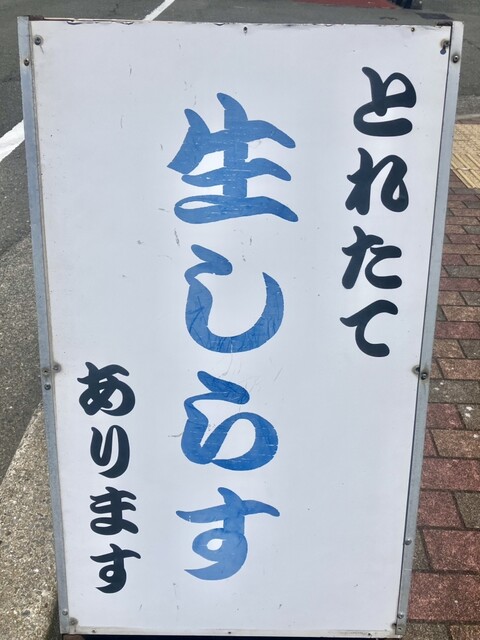 とれたて
生しらす
あります